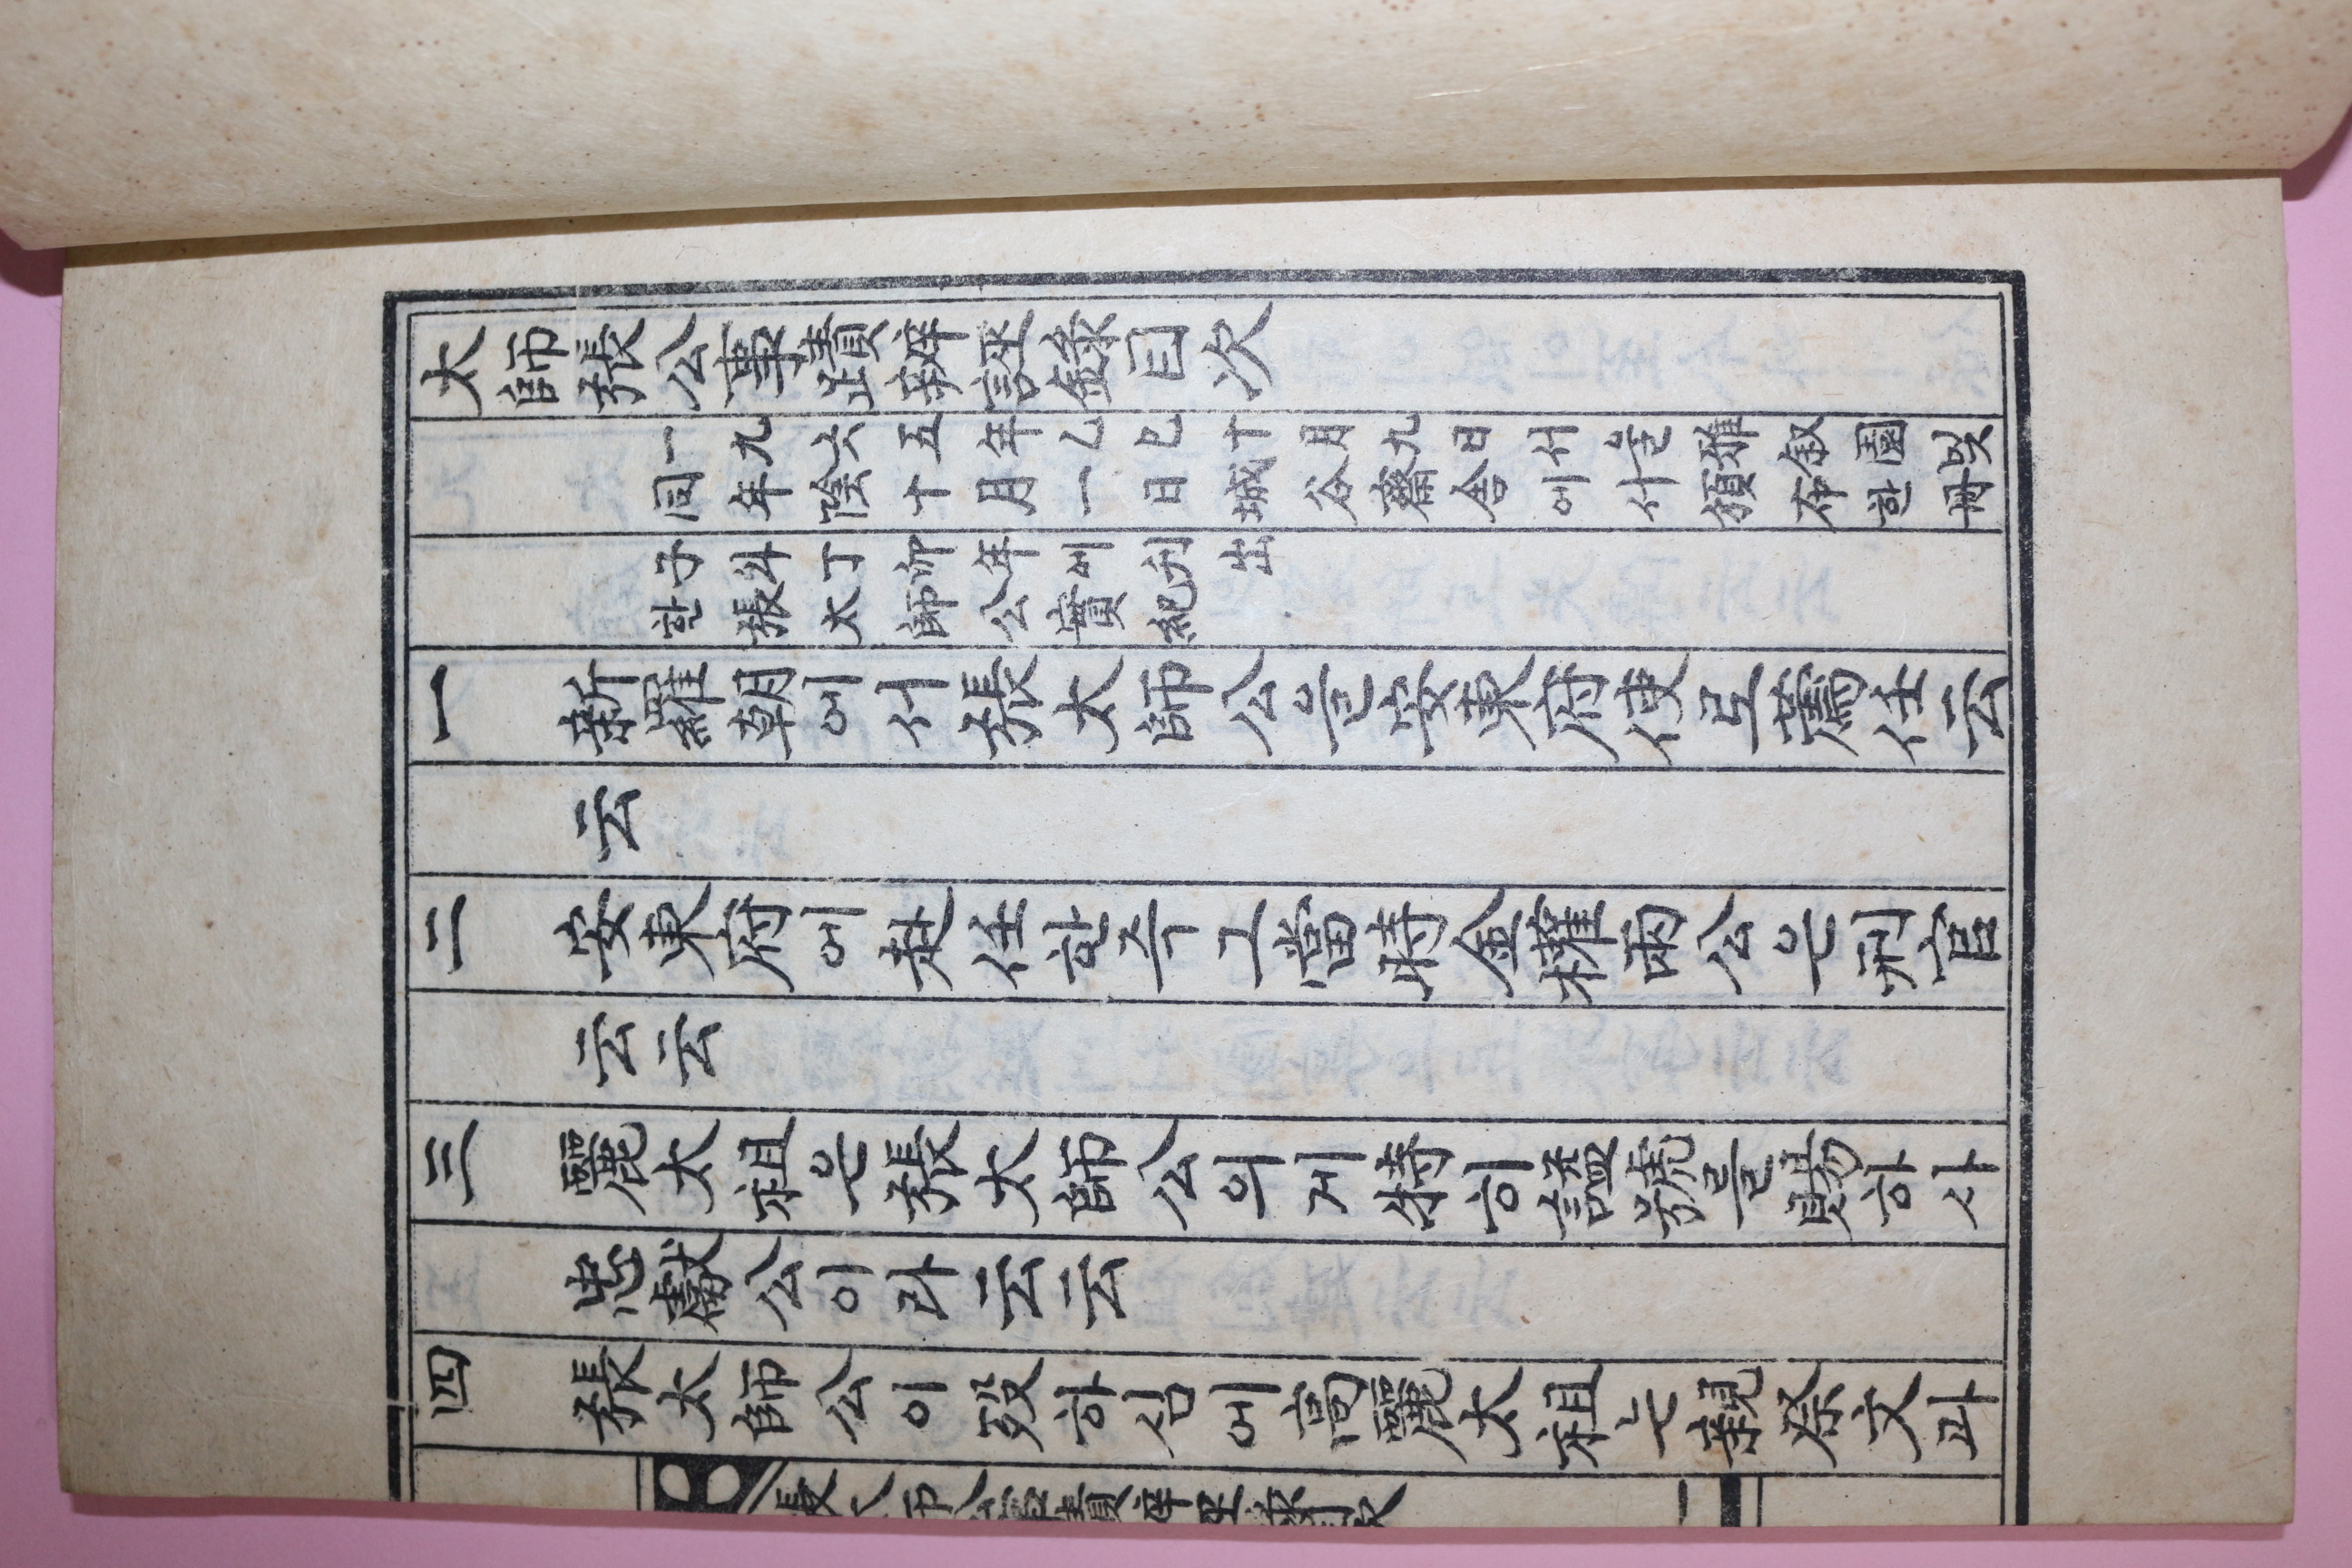 太師張公事蹟辨誣錄目次
一九六五年乙巳十月九日서울雅叙園및
同年陰十月一日城谷齋舍에서頒布한冊
子와丁卯年에刋出
한張太師公實紀
一 新羅朝에서張太師公을安東府使로薦任云
云
二 安東府에赴任한즉그當時金權兩公은刑官
云云
三 麗太祖은張太師公의게特히諡號를賜하사
忠獻公이라云云
四 張太師公이歿하심에高麗太祖는親祭文과
張太師公事蹟辨誣錄目次 一